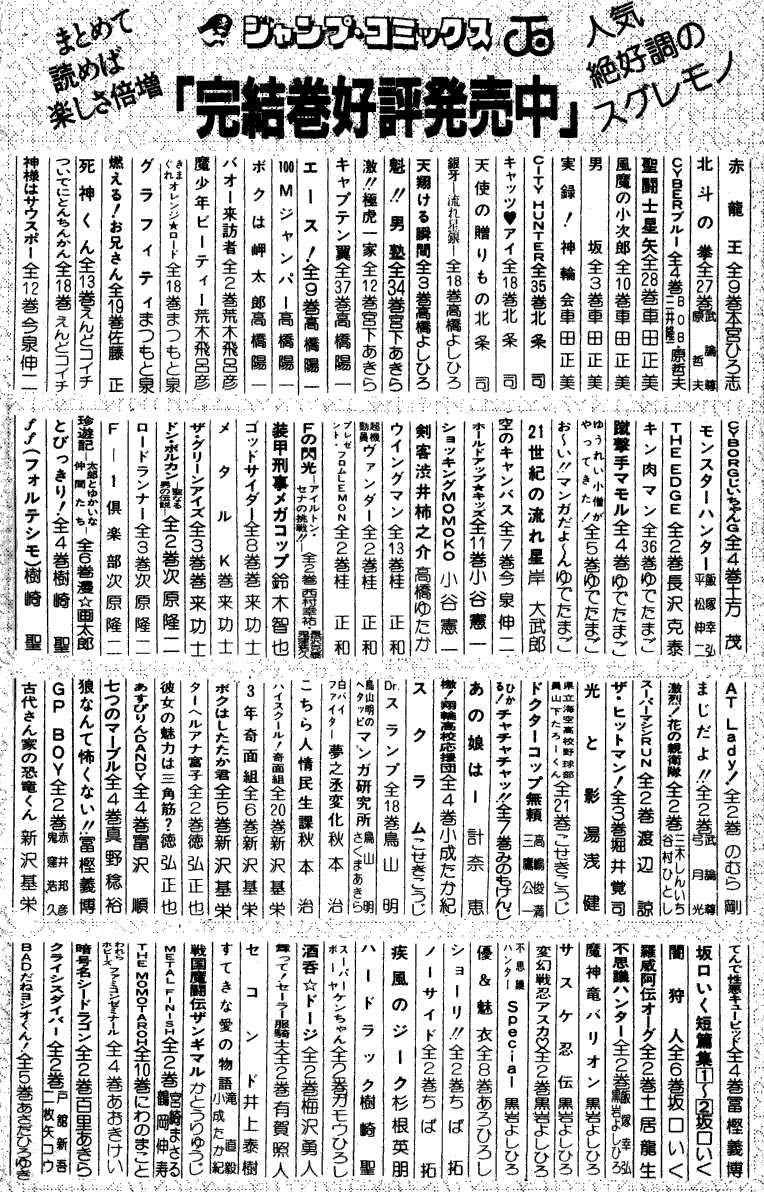 まとめて
読めば
楽しさ倍増
ジャンプ・コミックス
人気
絶好調の
スグレモノ
「完結巻好評発売中」
赤龍王 全9巻 本宮ひろ志
北斗の拳 全27巻 武論尊 原哲夫
CYBERブルー 全4巻 BOB・原哲夫 三井隆一
聖闘士星矢 全28巻 車田正美
風魔の小次郎 全10巻 車田正美
男坂 全3巻 車田正美
実録!神輪会 車田正美
CITY HUNTER 全35巻 北条司
キャッツ♥アイ 全18巻 北条司
天使の贈りもの 北条司
銀牙―流れ星銀― 全18巻 高橋よしひろ
天翔ける瞬間 全3巻 高橋よしひろ
魁!!男塾 全34巻 宮下あきら
激!!極虎一家 全12巻 宮下あきら
キャプテン翼 全37巻 高橋陽一
エース! 全9巻 高橋陽一
100Mジャンパー 高橋陽一
ボクは岬太郎 高橋陽一
バオー来訪者 全2巻 荒木飛呂彦
魔少年ビーティー 荒木飛呂彦
きまぐれオレンジ★ロード 全18巻 まつもと泉
グラフィティ まつもと泉
燃える!お兄さん 全19巻 佐藤正
死神くん 全13巻 えんどコイチ
ついでにとんちんかん 全18巻 えんどコイチ
神様はサウスポー 全12巻 今泉伸二
CYBORGじいちゃんG 全4巻 土方茂
モンスターハンター 飯塚幸弘 平松伸二
THE EDGE 全2巻 長沢克泰
キン肉マン 全36巻 ゆでたまご
蹴撃手マモル 全4巻 ゆでたまご
ゆうれい小僧がやってきた! 全5巻 ゆでたまご
お〜い!!マンガだよ〜ん ゆでたまご
21世紀の流れ星 岸大武郎
空のキャンバス 全7巻 今泉伸二
ホールドアップ★キッズ 全11巻 小谷憲一
ショッキングMOMOKO 小谷憲一
剣客渋井柿之介 高橋ゆたか
ウイングマン 全13巻 桂正和
超機動員ヴァンダー 全2巻 桂正和
プレゼント・フロムLEMON 全2巻 桂正和
Fの閃光―アイルトン・セナの挑戦!!― 全2巻 西村幸祐・
装甲刑事メガコップ 鈴木智也
ゴッドサイダー 全8巻 巻来功士
メタルK 巻来功士
ザ・グリーンアイズ 全3巻 巻来功士
ドン・ボルカン―聖なる男の伝説― 全2巻 次原隆二
ロードランナー 全3巻 次原隆二
F―1倶楽部 次原隆二
珍遊記―太郎とゆかいな仲間たち― 全6巻 漫☆画太郎
とびっきり! 全4巻 樹崎聖
ff(フォルテシモ) 樹崎聖
AT Lady! 全2巻 のむら剛
まじだよ!! 全2巻 武論尊 弓月光
激烈!花の親衛隊 全2巻 三木しんいち 谷村ひとし
スーパーマシンRUN 全2巻 渡辺諒
ザ・ヒットマン! 全3巻 堀井覚司
光と影 湯浅健
県立海空高校野球部員山下たろーくん 全21巻 こせきこうじ
ドクターコップ無頼 高嶋俊満 三鷹公一
ひかる!チャチャチャッ!! 全7巻 みのもけんじ
あの娘はー 計奈恵
檄!翔輪高校応援団 全4巻 小成たか紀
スクラム こせきこうじ
Dr.スランプ 全18巻 鳥山明
鳥山明のヘタッピマンガ研究所 鳥山明 さくまあきら
白バイファイター夢之丞変化 秋本治
こちら人情民生課 秋本治
ハイスクール!奇面組 全20巻 新沢基栄
3年奇面組 全6巻 新沢基栄
ボクはしたたか君 全5巻 新沢基栄
ターヘルアナ富子 全2巻 徳弘正也
彼女の魅力は三角筋? 徳弘正也
あすぴりんDANDY 全4巻 富沢順
七つのマーブル 全4巻 真野稔裕
狼なんて怖くない!! 冨樫義博
GP BOY 全2巻 赤井邦彦 鬼窪浩久
古代さん家の恐竜くん 新沢基栄
てんで性悪キューピッド 全4巻 冨樫義博
坂口いく短篇集1〜2 坂口いく
闇狩人 全6巻 坂口いく
羅威阿伝オーグ 全2巻 土居龍生
不思議ハンター 全2巻 飯塚幸弘 黒岩よしひろ
魔神竜バリオン 黒岩よしひろ
サスケ忍伝 黒岩よしひろ
変幻戦忍アスカ♡ 全2巻 黒岩よしひろ
不思議ハンターSpecial 黒岩よしひろ
優&魅衣 全8巻 あろひろし
ショーリ!! 全2巻 ちば拓
ノーサイド 全2巻 ちば拓
疾風のジーク 杉根英朋
ハードラック 樹崎聖
スーパーボーヤケンちゃん 全2巻 ガモウひろし
酒呑☆ドージ 全2巻 梅沢勇人
舞って!セーラー服騎士 全2巻 有賀照人
セコンド 井上泰樹
すてきな愛の物語 滝直毅 小成たか紀
戦国魔闘伝ザンギマル かとうりゅうじ
METAL FINISH 全2巻 宮崎まさる 鶴岡伸寿
THE MOMOTAROH 全10巻 にわのまこと
われらホビーズファミコンゼミナール 全4巻 あおきけい
暗号名シードラゴン 全2巻 百里あきら
クライシスダイバー 全2巻 戸舘新吾 二枚矢コウ
BADだねヨシオくん! 全5巻 あさだひろゆき